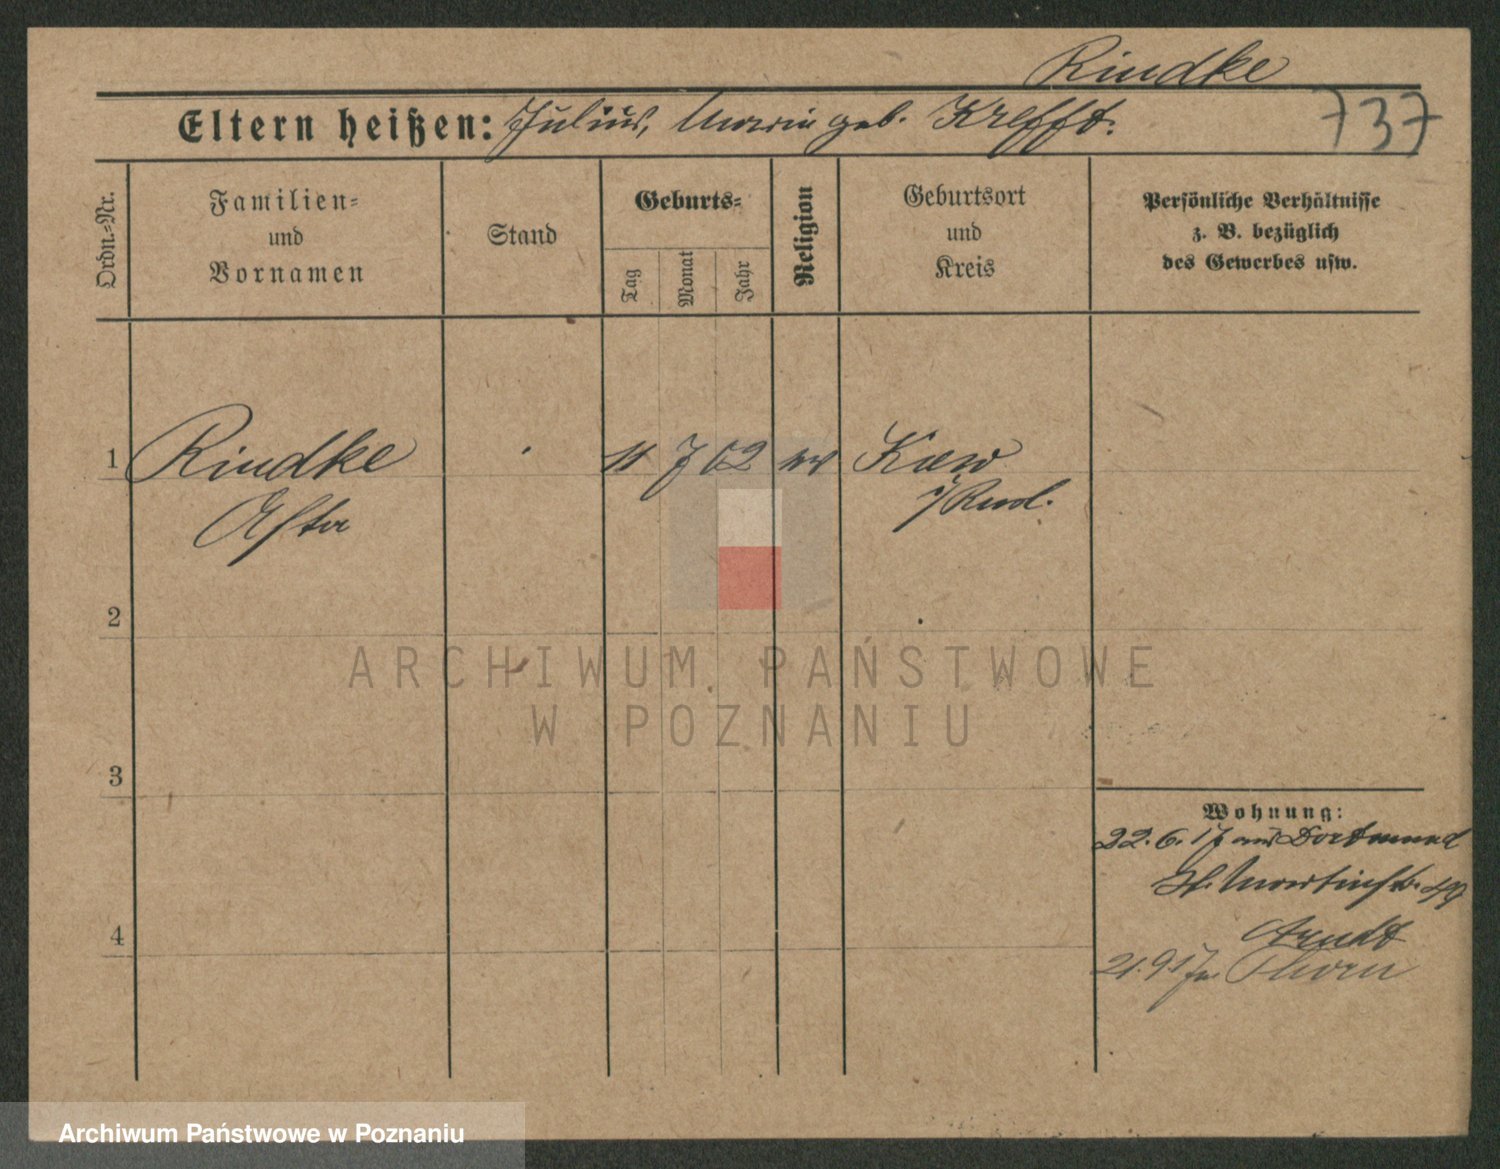 Rindke
Eltern heißen: Julius, Marie geb. Krefft.
737
Ordn.=Nr.
Familien=
und
Vornamen
Stand
Geburts=
Tag
Monat
Jahr
Religion
Geburtsort
und
Kreis
Persönliche Verhältnisse
z. B. bezüglich
des Gewerbes usw.
1 Rindke 11 7 62 ev
2
ARCHIWUM PAŃSTWOWE
W POZNANIU
3
Wohnung:
22.6.17 aus Dortmund
St. Martinstr.
4
Arndt
21.9.17 Thorn
Archiwum Państwowe w Poznaniu